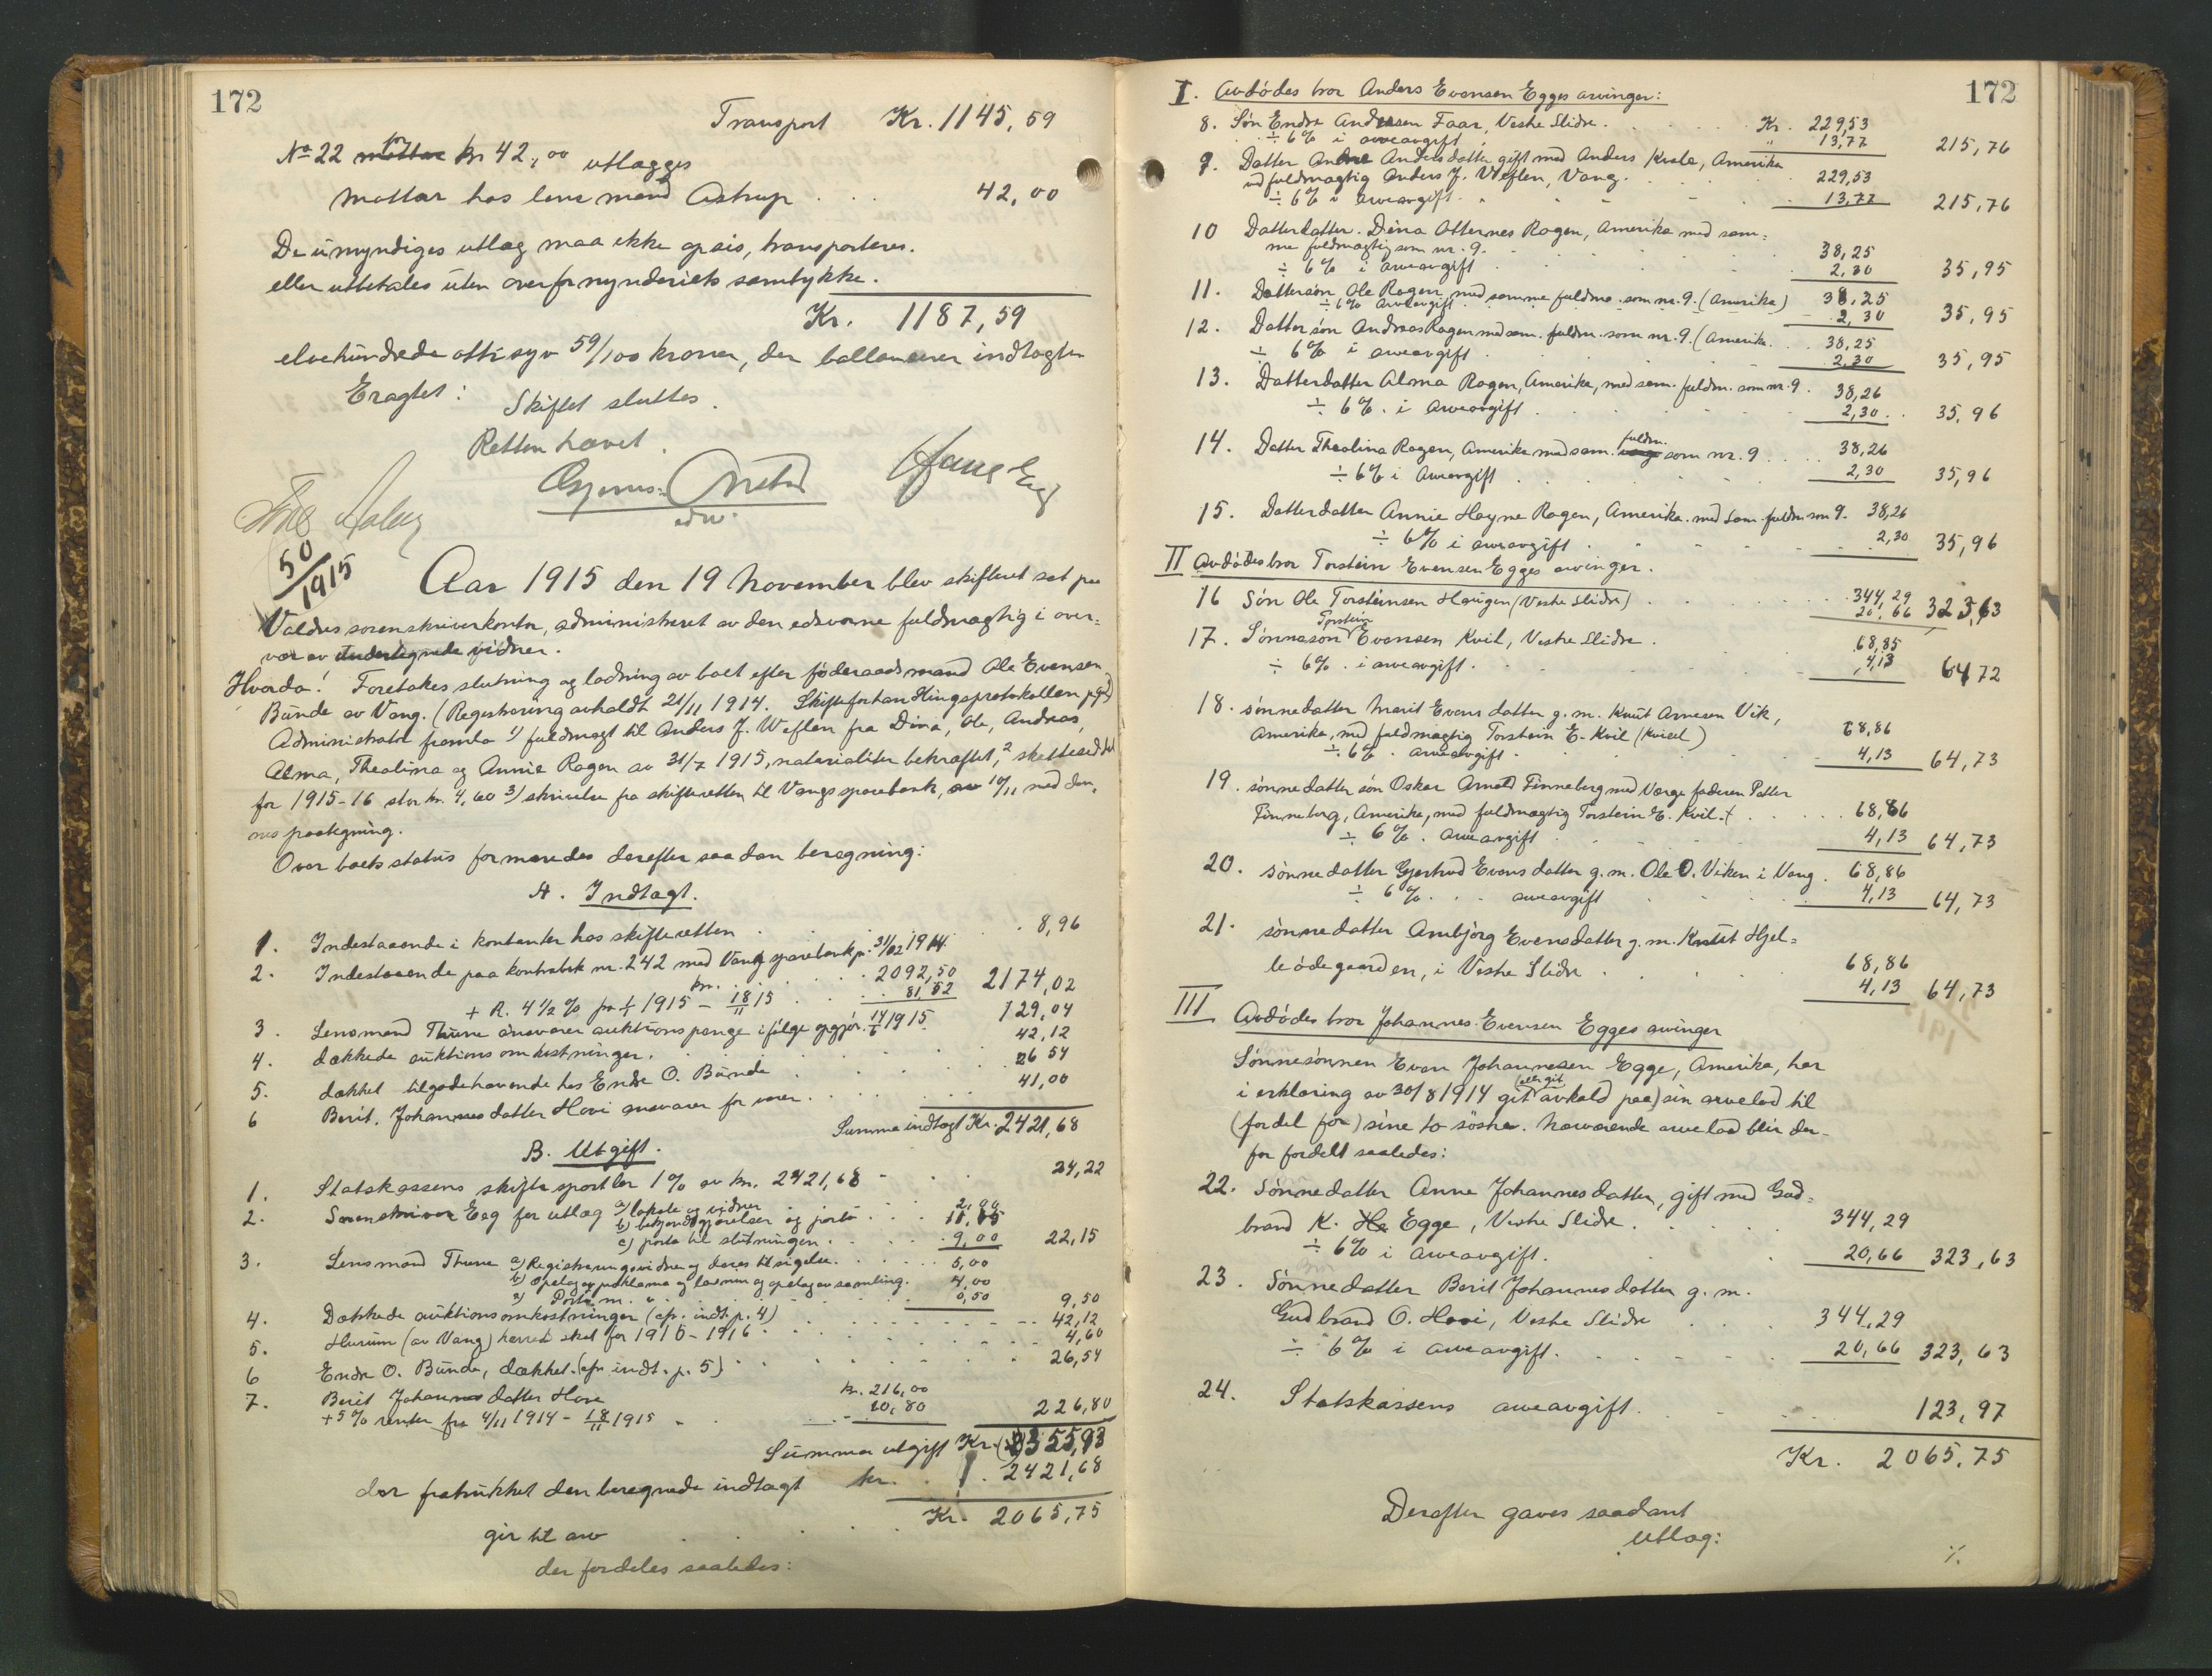 172
Transport Kr. 1145,59
No 22 for kr 42,00 utlægges
mottar hos lensmand Astrup . . . 42,00
De umyndiges utlæg maa ikke opsis, transporteres.
eller utbetales uten overformynderiets samtykke.
Kr. 1187,59
elvehundrede otti syv 59/100 kroner, der ballanserer indtægten
Eragtet: Skiftet sluttes.
Retten hævet.
edsv.
50/1915
Aar 1915 den 19 November blev skifteret sat paa
Valdres sorenskriverkontor, administreret av den edsvorne fuldmægtig i over-
vær av undertegnede vidner.
Hvorda! Foretokes slutning og lodning av boet efter føderaadsmand Ole Evensen
Bunde av Vang. (Registrering avholdt 21/11 1914. Skifteforhandlingsprotokollen
Administrator fremla 1) fuldmagt til Anders J. Weflen fra Dina, Ole, Andreas,
Alma, Thealina og Annie Rogen av 31/7 1915, notarialiter bekræftet, 2 skatteseddel
for 1915-16 stor kr. 4,60 3) skrivelse fra skifteretten til Vangs sparebank, av 10/11 med den-
nes paategning.
Over boets status formeredes derefter saadan beregning:
A. Indtægt.
1. Indestaaende i kontanter hos skifteretten . . . 8,96
2. Indestaaende paa kontrabok nr. 242 med Vang sparebank pr. 31/12 1914
kr. . . . 2092,50
+ R. 4 1/2 % fra 1/1 1915 - 18/11 15 . . 81,52 2174,02
3. Lensmand Thune ansvarer auktionspenge ifølge opgjør. 14/6 1915. 129,04
4. dækkede auktionsomkostninger. . . . 42,12
5. dækket tilgodehavende hos Endre O. Bunde . . . 26 54
6 Berit Johannesdatter Hovi ansvarer for varer. . . . 41,00
Summa indtægt Kr. 2421,68
B. Utgift.
1. Statskassens skiftesportler 1% av kr. 2421,68 - . . 24,22
2. Sorenskriver Eeg for utlæg a) lokale og vidner . . . 2,00
b) bekjendtgjørelser og porto . . . 11,15
c) porto til slutningen. . . . 9,00 22,15
3. Lensmand Thune a) Registreringsvidner og deres tilsigelse. . . . 5,00
b) opslag og proklama og opslag av samling. 4,00
Porto m. " . . . 0,50 9,50
4. Dækkede auktionsomkostninger (cfr. indt. p. 4) . . . 42,12
5. Hurum (av Vang) herred skat for 1915-1916 . . . 4,60
6 Endre O. Bunde, dækket. (cfr indt. p. 5) . . . 26,54
7. Berit Johannesdatter Hove kr. 216,00
+ 5% renter fra 4/11 1914 - 18/11 1915 - . . 10,80 226,80
Summa utgift Kr. 355,93
der fratrukket den beregnede indtægt kr. . 2421,68
gir til arv . . . Kr. 2065,75
der fordeles saaledes:
172
I. Avdødes bror Anders Evensen Egges arvinger:
8. Søn Endre Andersen Faar, Vestre Slidre. . . . Kr. 229,53
÷ 6% i arveavgift . . . " 13,77 215,76
9. Datter Andersdatter gift med Anders Kvale, Amerika
ved fuldmægtig Anders J. Weflen, Vang. . . . 229,53
÷ 6% i arveavgift. . . . 13,77 215,76
10 Datterdatter. Dina Otternes Rogen, Amerika med sam-
me fuldmægtig som nr. 9. . . . 38,25
÷ 6% i arveavgift . . . 2,30 35,95
11. Dattersøn Ole Rogen med samme fuldm. som nr. 9. (Amerika) 38,25
÷ 6% arveavgift . . . 2,30 35,95
12. Dattersøn Andreas Rogen med sam. fuldm. som nr. 9. (Amerika. . . 38,25
÷ 6% i arveavgift . . . 2,30 35,95
13. Datterdatter Alma Rogen, Amerika, med sam. fuldm. som nr. 9. 38,26
÷ 6% . i arveavgift . . . 2,30 . 35,96
14. Datter Thealina Rogen, Amerika med sam. fuldm. som nr. 9 . . . 38,26
÷ 6% i arveavgift . . . 2,30 35,96
15. Datterdatter Annie Hayne Rogen, Amerika. med sam. fuldm som 9. 38,26
÷ 6% i arveavgift . . . 2,30 35,96
II Avdødes bror Torstein Evensen Egges arvinger.
16 Søn Ole Torsteinsen Haugen (Vestre Slidre) . . . 344,29
20,66 323,63
17. Sønnesøn Torstein Evensen Kvil, Vestre Slidre . . . 68,85
÷ 6% . i arveavgift. . . . 4,13 64 72
18. sønnedatter Marit Evensdatter g. m. Knut Arnesen Vik,
Amerika, med fuldmægtig Torstein E. Kvil 68,86
÷ 6% . arveavgift . . . 4,13 64,73
19. sønnedatter søn Oskar Arnold Finneberg med Værge faderen Petter
Finneberg, Amerika, med fuldmægtig Torstein E. Kvil. . . . 68,86
÷ 6% . arveavgift . . . 4,13 64,73
20. sønnedatter Gjertrud Evensdatter g. m. Ole O. Viken i Vang. 68,86
÷ 6% . . . arveavgift . . . 4,13 64,73
21. sønnedatter Ambjørg Evensdatter g. m. Knut Hjel-
leødegaarden, i Vestre Slidre . . . 68,86
4,13 64,73
III Avdødes bror Johannes Evensen Egges arvinger
Sønnesønnen Even Johannesen Egge, Amerika, har
i erklæring av 30/8 1914 git (eller git avkald paa) sin arvelod til
(fordel for) sine to søstre. Nærværende arvelod blir der-
for fordelt saaledes:
22. Sønnedatter Anne Johannesdatter, gift med Gud-
brand K. Egge, Vestre Slidre. . . . 344,29
÷ 6% i arveavgift. . 20,66 323,63
23. Sønnedatter Berit Johannesdatter g. m.
Gudbrand O. Hovi, Vestre Slidre . . . 344,29
÷ 6% i arveavgift. . . . 20,66 323,63
24. Statskassens arveavgift. . . . 123,97
Kr. 2065,75
Derefter gaves saadant
Utlæg: